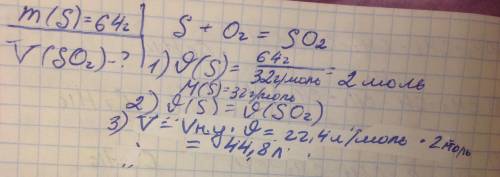 m(S)=64г
V(SO₂)-?
S + O₂ = SO₂
1) ϑ(S) = 64г / 32г/моль = 2 моль
M(S)=32г/моль
2) ϑ(S) = ϑ(SO₂)
3) V = Vн.у. · ϑ = 22,4 л/моль · 2 моль
= 44,8 л.